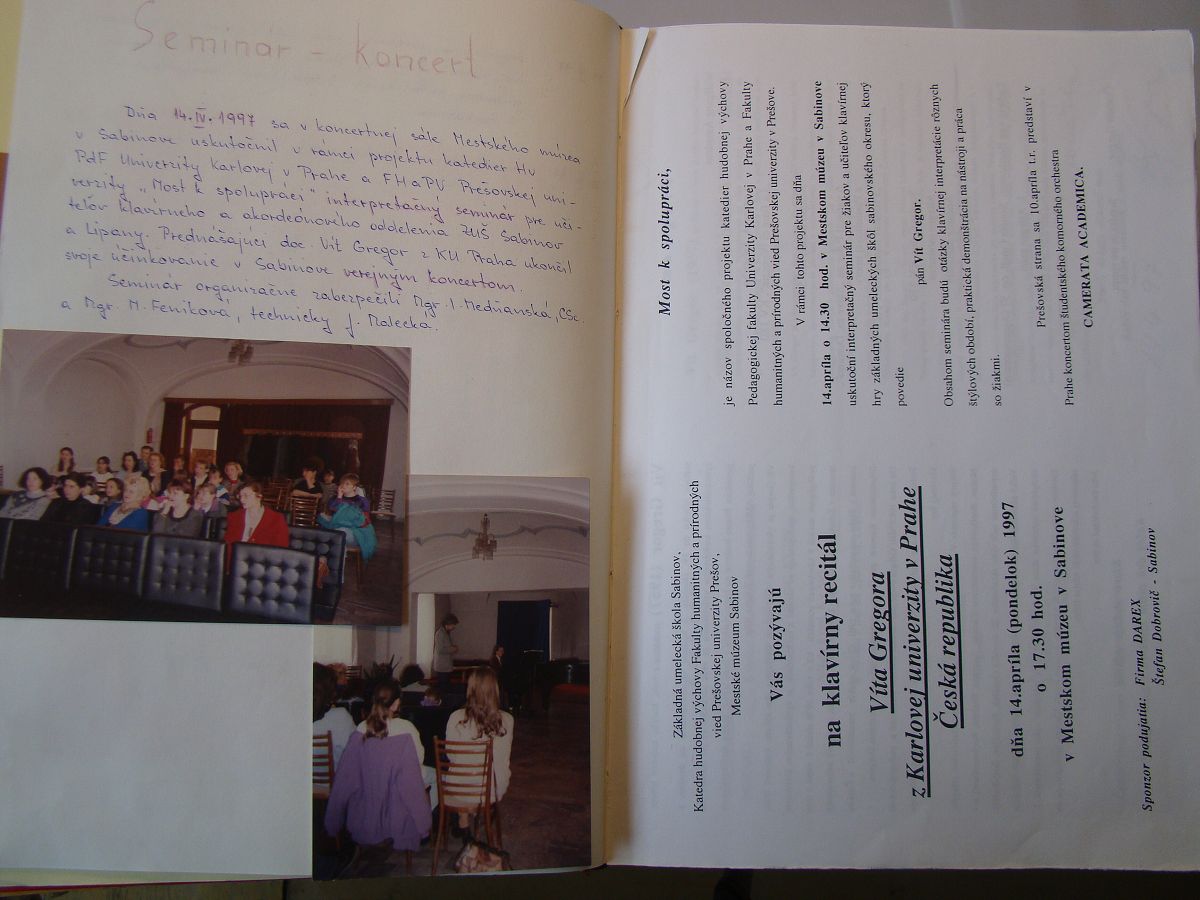 Seminár - koncert
Dňa 14.IV.1997 sa v koncertnej sále Mestského múzea
v Sabinove uskutočnil v rámci projektu katedier Hv
PdF Univerzity Karlovej v Prahe a FHaPV Prešovskej uni-
verzity „Most k spolupráci" interpretačný seminár pre uči-
teľov klavírneho a akordeónového oddelenia ZUŠ Sabinov
a Lipany. Prednášajúci doc. Vít Gregor z KU Praha ukončil
svoje účinkovanie v Sabinove verejným koncertom.
Seminár organizačne zabezpečili Mgr. I. Medňanská, CSc.
a Mgr. M. Feniková, technicky J. Molecka.
Základná umelecká škola Sabinov,
Katedra hudobnej výchovy Fakulty humanitných a prírodných
vied Prešovskej univerzity Prešov,
Mestské múzeum Sabinov
Vás pozývajú
na klavírny recitál
Víta Gregora
z Karlovej univerzity v Prahe
Česká republika
dňa 14.apríla (pondelok) 1997
o 17.30 hod.
v Mestskom múzeu v Sabinove
Sponzor podujatia: Firma DAREX
Štefan Dobrovič - Sabinov
Most k spolupráci,
je názov spoločného projektu katedier hudobnej výchovy
Pedagogickej fakulty Univerzity Karlovej v Prahe a Fakulty
humanitných a prírodných vied Prešovskej univerzity v Prešove.
V rámci tohto projektu sa dňa
14.apríla o 14.30 hod. v Mestskom múzeu v Sabinove
uskutoční interpretačný seminár pre žiakov a učiteľov klavírnej
hry základných umeleckých škôl sabinovského okresu, ktorý
povedie
pán Vít Gregor.
Obsahom seminára budú otázky klavírnej interpretácie rôznych
štýlových období, praktická demonštrácia na nástroji a práca
so žiakmi.
Prešovská strana sa 10.apríla t.r. predstaví v
Prahe koncertom študentského komorného orchestra
CAMERATA ACADEMICA.